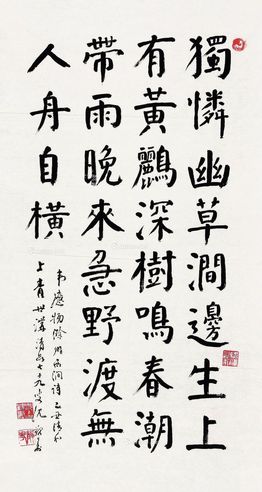 獨憐幽草澗邊生上
有黃鸝深樹鳴春潮
帶雨晚來急野渡無
人舟自橫
韋應物滁州西澗詩